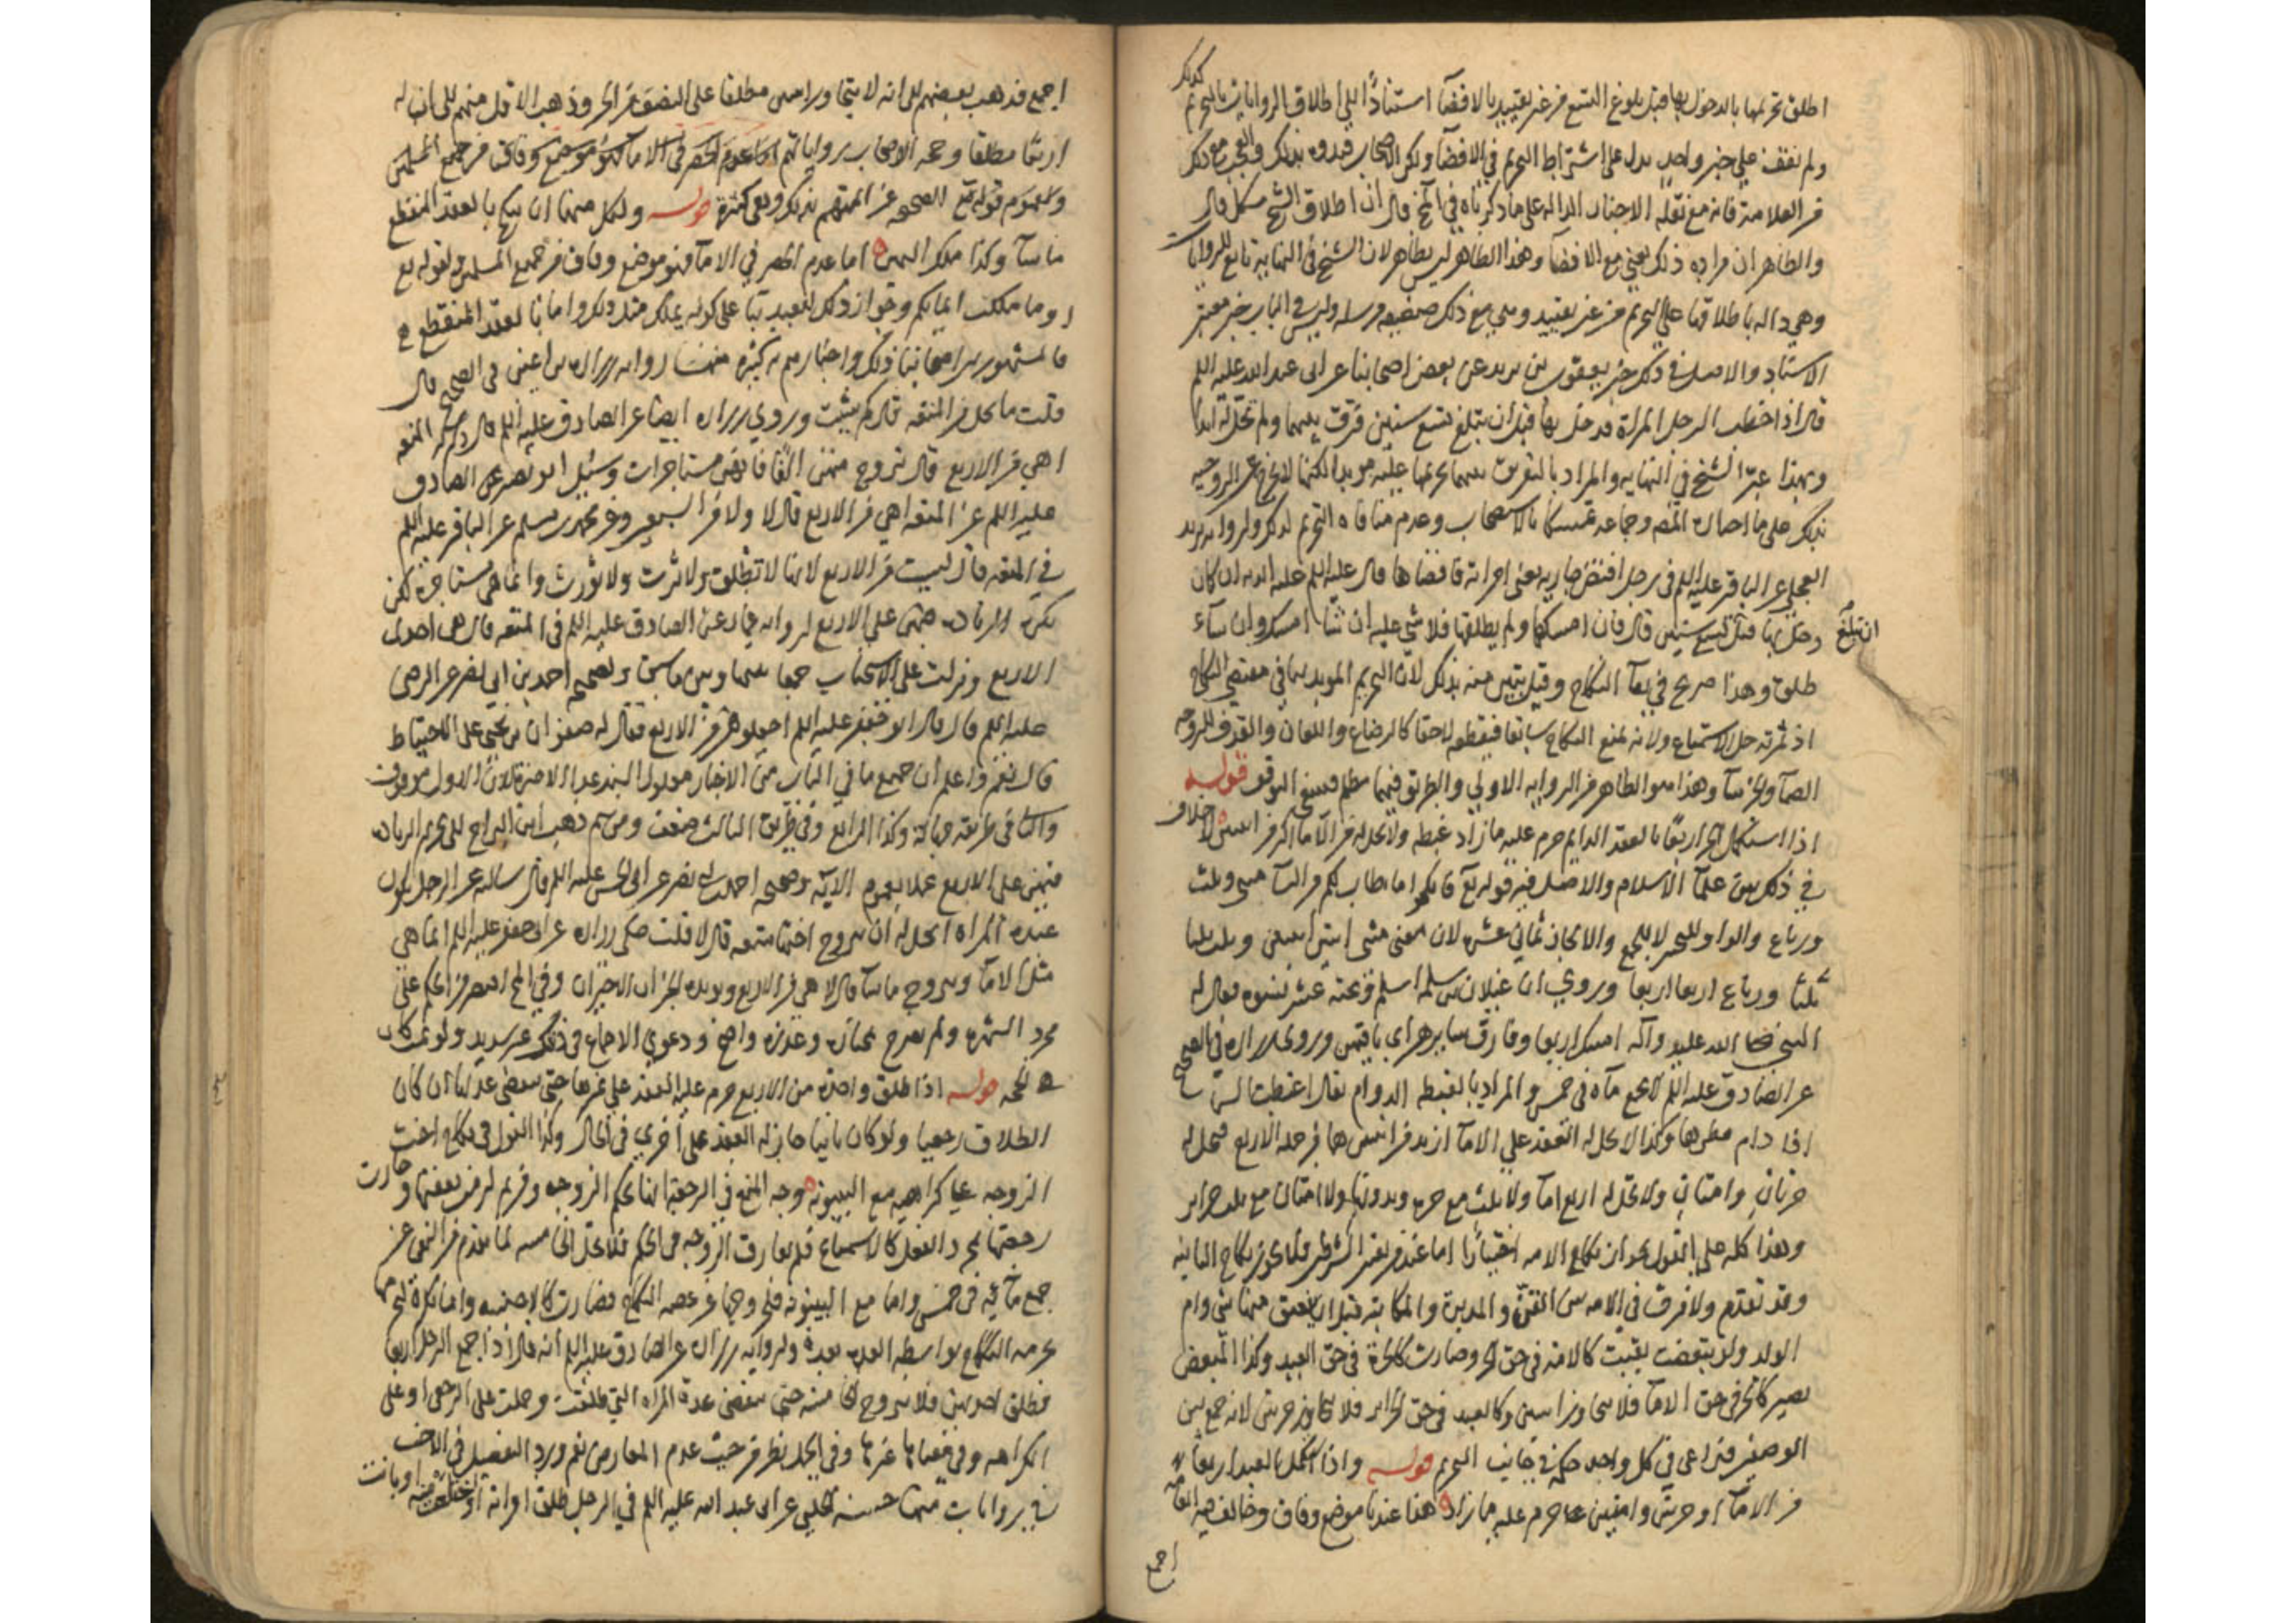 اطلق تحريمها بالدخول بها قبل بلوغ التسع من غير تقييد بالافضآ استنادًا الى اطلاق الروايات بالتحريم كذلك
ولم نقف على خبر واحد يدل على اشتراط التحريم في الافضآ ولكن الاصحاب قيدوه بذلك والعجب مع ذلك
من العلامة فانه مع نقله الاخبار الدالة على ما ذكرناه في المخ قال ان اطلاق الشيخ مشكل قال
والظاهر ان مراده ذلك يعني مع الافضآ وهذا الظاهر ليس بظاهر لان الشيخ في النهاية تابع للروايات
وهي دالة باطلاقها على التحريم من غير تقييد وهي مع ذلك ضعيفة مرسلة وليس في الباب خبر معتبر
الاسناد والاصل في ذلك خبر يعقوب بن يزيد عن بعض اصحابنا عن ابى عبد الله عليه اللم
قال اذا خطب الرجل المراة فدخل بها قبل ان تبلغ تسع سنين فرّقت بينهما ولم تحل له ابدا
وبهذا عبّر الشيخ في النهاية والمراد بالتفريق بينهما تحريمها عليه مويدا لكنها لا تخرج عن الزوجية
بذلك على ما اختاره المصه وجماعة تمسكا بالاستصحاب وعدم منافاة التحريم لذلك ولرواية بريد
العجلي عن الباقر عليه اللم في رجل افتض جارية يعني امراته فافضاها قال عليه اللم عليه الدية ان كان
دخل بها قبل ان تبلغ تسع سنين قال فان امسكها ولم يطلقها فلا شي عليه ان شآ امسك وان شآء
طلق وهذا صريح في بقآ النكاح وقيل تبين منه بذلك لان التحريم الموبد ينافي مقتضى النكاح
اذ ثمرته حل الاستمتاع ولانه يمنع النكاح سابقا فيقطعه لاحقا كالرضاع واللعان والقذف للزوجة
الصمآ والخرسآ وهذا هو الظاهر من الرواية الاولى والطريق فيهما مظلم فينبغي التوقف قوله
اذا استكمل الحر اربعًا بالعقد الدايم حرم عليه ما زاد غبطة ولا يحل له من الامآ اكثر من اثنتين لا خلاف
في ذلك بين علمآ الاسلام والاصل فيه قوله تع فانكحوا ما طاب لكم من النسآ مثنى وثلث
ورباع والواو للتخيير لا للجمع والا لجاز ثماني عشرة لان معنى مثنى اثنتين اثنتين وثلث ثلثا
ثلثا ورباع اربعا اربعا وروي ان غيلان بن سلمة اسلم وعنده عشر نسوة فقال له
النبي صلى الله عليه وآله امسك اربعا وفارق سايرهن اي باقيهن وروى زرارة في الصحيح
عن الصادق عليه اللم لا يجمع مآه في خمس والمراد بالغبطة الدوام يقال اغبطت السمآ
اذا دام مطرها وكذا لا يحل له العقد على الامآ ازيد من اثنتين هما من جملة الاربع فيحل له
حرتان وامتان ولا يحل له اربع امآ ولا ثلث مع حرة وبدونها ولا امتان مع ثلث حراير
وهذا كله على القول بجواز نكاح الامة اختيارًا اما عند من يعتبر الشرطين فلا يجوز نكاح الثانية
وقد تقدم ولا فرق في الامة بين القن والمدبرة والمكاتبة قبل ان يعتق منها شي وام
الولد ولو تبعضت بقيت كالامة في حق الحر وصارت كالحرة في حق العبد وكذا المبعض
يصير كالحر في حق الامآ فلا يتجاوز اثنتين وكالعبد في حق الحراير فلا يتجاوز حرتين لانه جمع بين
الوصفين فيراعى في كل واحد حكمه في جانب التحريم قوله واذا استكمل العبد اربعًا
من الامآ او حرتين او امتين حرم عليه ما زاد هذا عندنا موضع وفاق وخالف فيه العامة
اجمع
اجمع فذهب بعضهم الى انه لا يتجاوز اثنتين مطلقا على النصف من الحر وذهب الاقل منهم الى ان له
اربعًا مطلقا وحجة الاصحاب رواياتهم اما عدم الحصر في الامآ فهو موضع وفاق من جميع المسلمين
ولعموم قوله تع الصحيحة عن ائمتهم بذلك وهي كثيرة قوله ولكل منهما ان ينكح بالعقد المنقطع
ما شآ وكذا ملك اليمين اما عدم الحصر في الامآ فهو موضع وفاق من جميع المسلمين لقوله تع
او ما ملكت ايمانكم وجواز ذلك للعبد بنآ على كونه يملك مثل ذلك واما بالعقد المنقطع
فالمشهور بين اصحابنا ذلك واخبارهم به كثيرة منها رواية زرارة بن اعين في الصحيح قال
قلت ما يحل من المتعة قال كم شئت وروى زرارة ايضا عن الصادق عليه اللم قال ذكر له المتعة
اهي من الاربع قال تزوج منهن الفًا فانهن مستاجرات وسئل ابو بصير عن الصادق
عليه اللم عن المتعة اهي من الاربع قال لا ولا من السبعين وعن محمد بن مسلم عن الباقر عليه اللم
في المتعة قال ليست من الاربع لانها لا تطلق ولا ترث ولا تورث وانما هي مستاجرة لكن
تكره الزيادة فيهن على الاربع لرواية عمار عن الصادق عليه اللم في المتعة قال هي احدى
الاربع ونزلت على الاستحباب جمعا بينها وبين ما سبق ولصحيحة احمد بن ابي نصر عن الرضا
عليه اللم قال قال ابو جعفر عليه اللم اجعلوهن من الاربع فقال له صفوان بن يحيى على الاحتياط
قال نعم واعلم ان جميع ما في الباب من الاخبار معلول السند عدا الاخيرة لان الاول موقوف
والثاني طريقه جهالة وكذا الرابع وفي طريق الثالث ضعف ومن ثم ذهب ابن البراج الى تحريم الزيادة
فيهن على الاربع عملا بعموم الآية وصحيحة احمد بن ابى نصر عن ابى الحسن عليه اللم قال سالته عن الرجل يكون
عنده المراة ايحل له ان يتزوج اختها متعة قال لا قلت حكى زرارة عن ابى جعفر عليه اللم انما هي
مثل الامآ ويتزوج ما شآ قال لا هي من الاربع ويويده الخبران الاخيران وفي المخ اقتصر من الحكم على
مجرد الشهرة ولم يصرح بمختاره وعذره واضح ودعوى الاجماع في ذلك غير سديد ولو تمت كانت
هي الحجة قوله اذا طلق واحدة من الاربع حرم عليه العقد على غيرها حتى تنقضى عدتها ان كان
الطلاق رجعيا ولو كان باينا جاز له العقد على اخرى في الحال وكذا القول في نكاح اخت
الزوجة على كراهية مع البينونة وجه المنع في الرجعة انها بحكم الزوجة ومن ثم لزمت نفقتها وجازت
رجعتها بمجرد الفعل كالاستمتاع فلم تفارق الزوجة في الحكم فلا تحل الخامسة لما تقدم من النهي عن
جمع مائه في خمس واما مع البينونة فلخروجها عن عصمة النكاح فصارت كالاجنبية وانما يكره لتحرمها
بحرمة النكاح بواسطة العدة بعده ولرواية زرارة عن الصادق عليه اللم انه قال اذا جمع الرجل اربعا
فطلق احديهن فلا يتزوج الخامسة حتى تنقضى عدة المراة التي طلقت وحملت على الرجعى او على
الكراهة وفي معناها غيرها وفي الحمل نظر من حيث عدم المعارض نعم ورد التفصيل في الاخت
في روايات منها حسنة الحلبي عن ابى عبد الله عليه اللم في الرجل طلق امراته او اختلعت منه او بانت